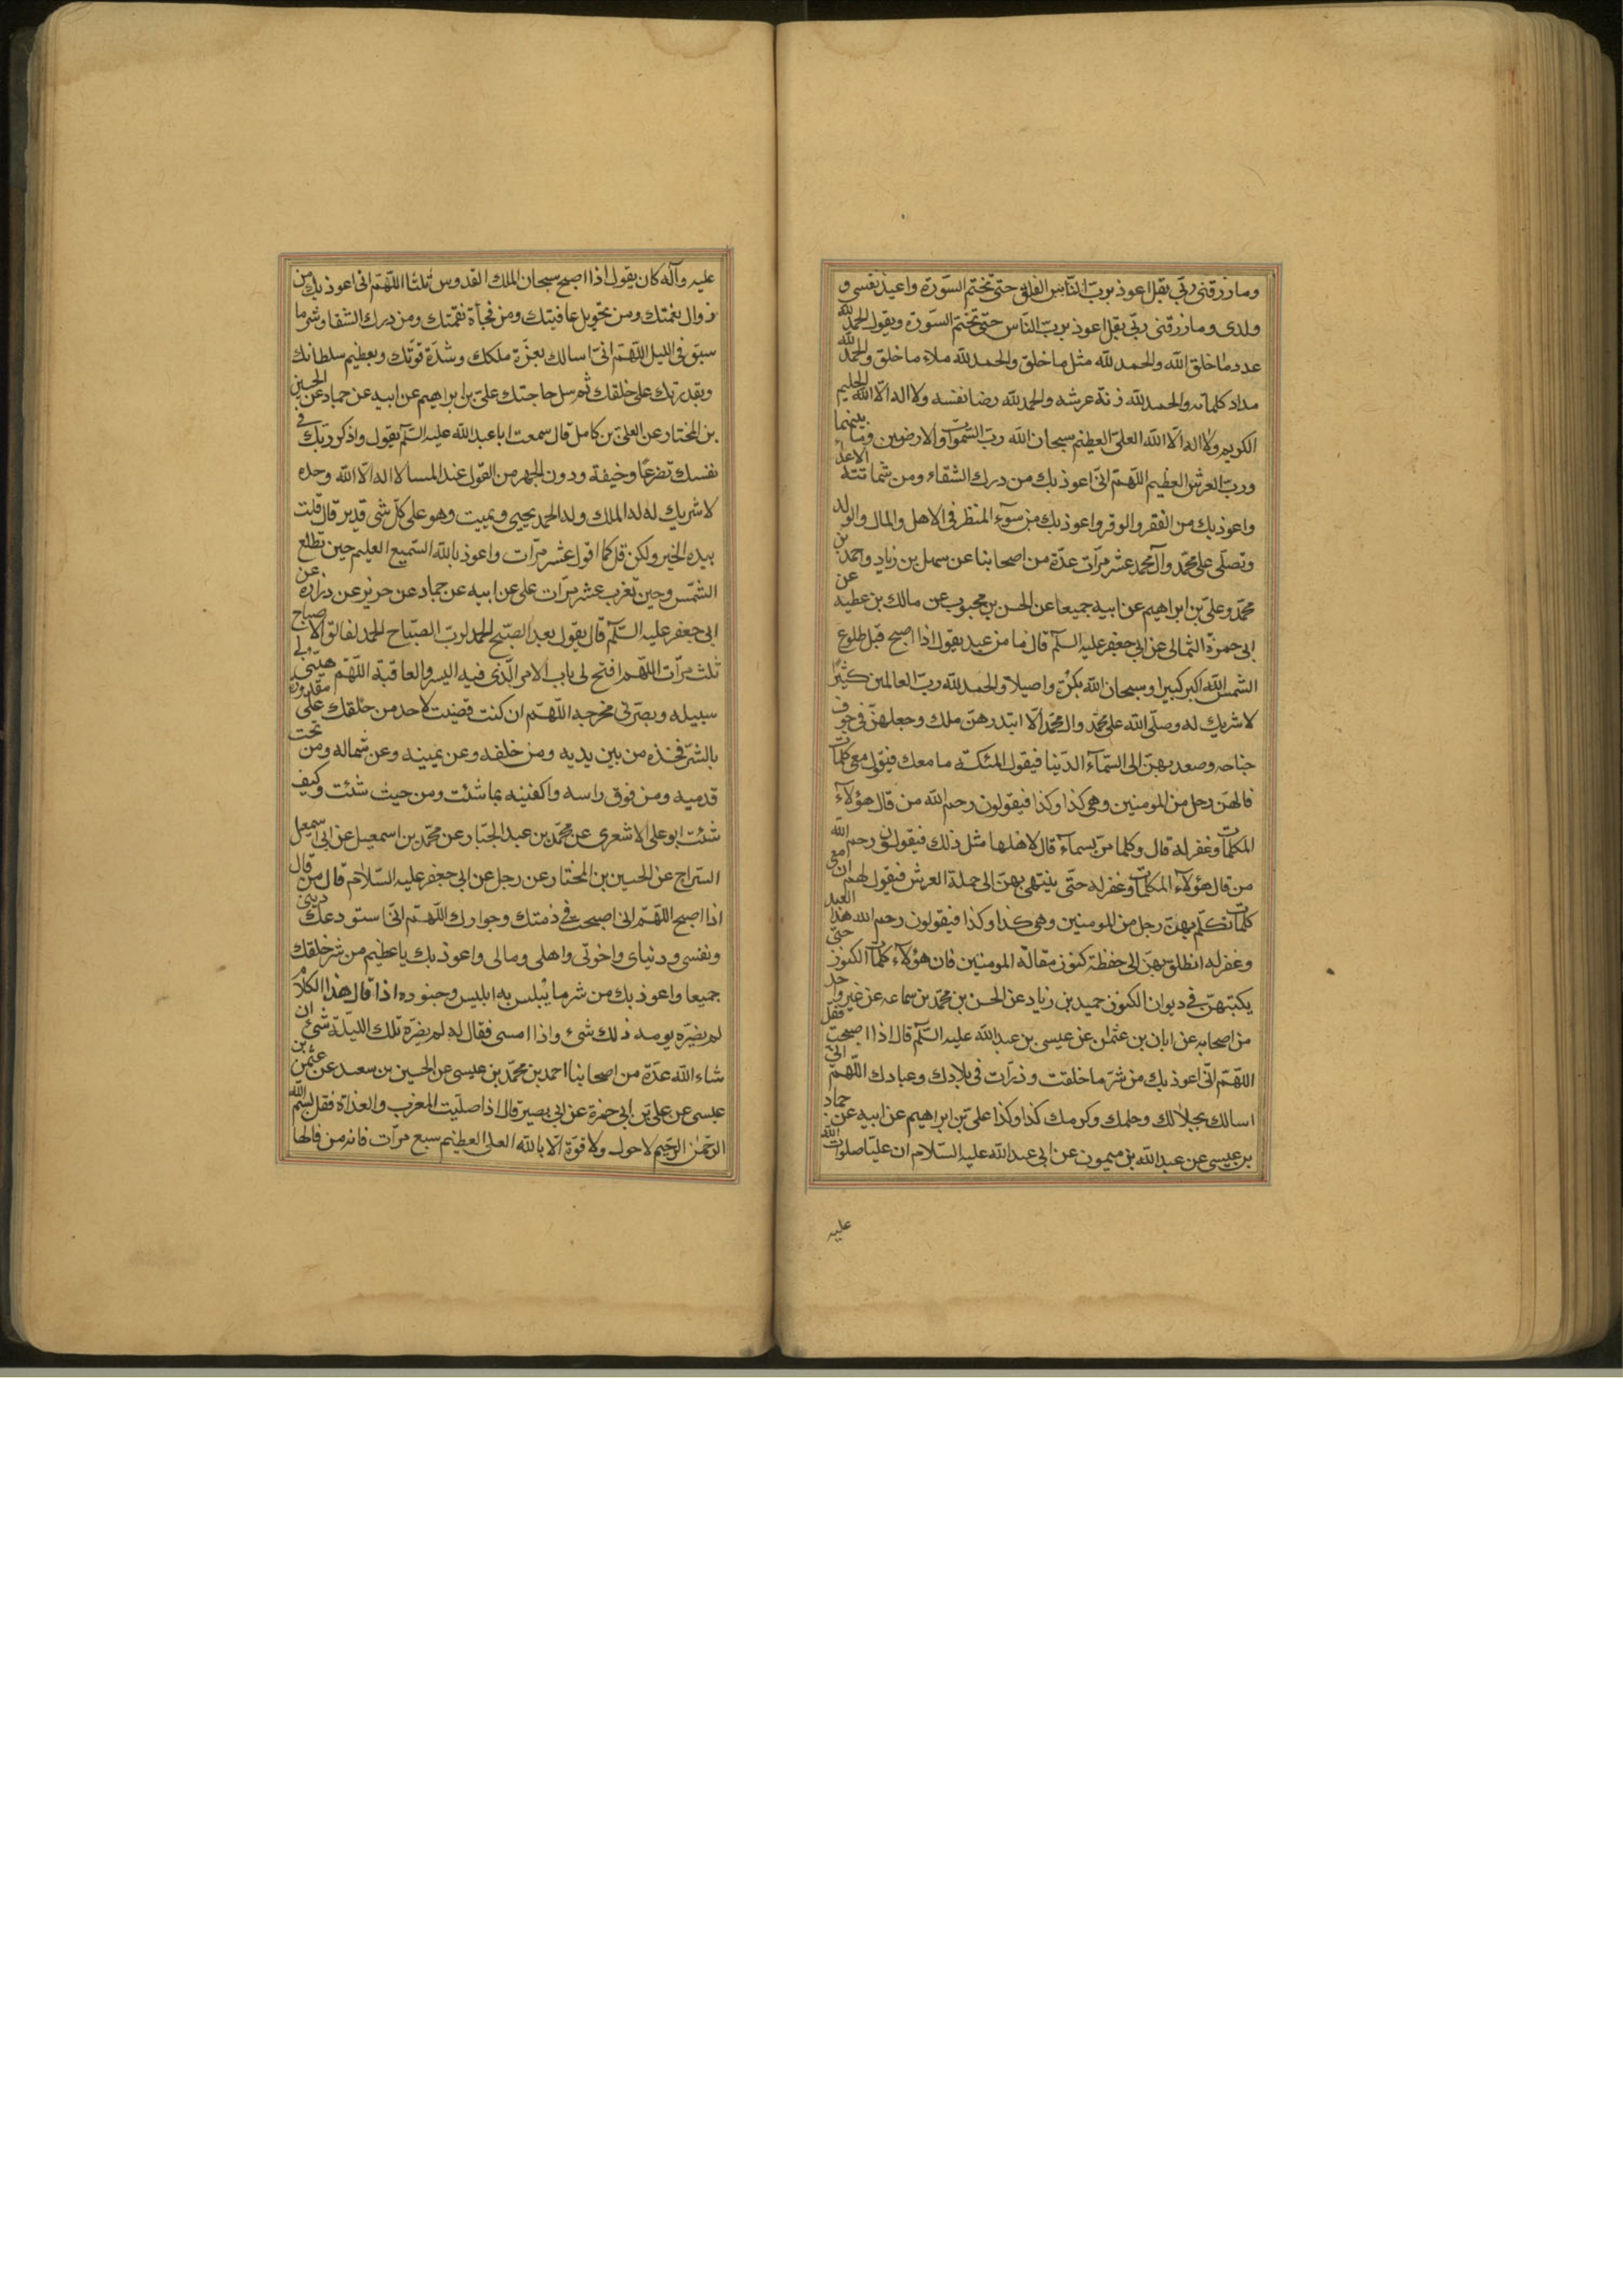 ومارزقنی ربی بقل اعوذ بربّ الفلق حتی تختم السّورة واعیذ نفسی و
ولدی ومارزقنی ربّی بقل اعوذ بربّ النّاس حتّی تختم السّورة ویقول الحمدلله
عدد ما خلق الله والحمد لله مثل ما خلق والحمد لله ملاء ما خلق والحمد لله
مداد کلماته والحمد لله زنة عرشه والحمد لله رضا نفسه ولا اله الّا الله الحلیم
الکریم ولا اله الّا الله العلیّ العظیم سبحان الله ربّ السّموات والارضین وما بینهما
وربّ العرش العظیم اللّهمّ انّی اعوذ بك من درك الشقاء ومن شماتة الاعدا
واعوذ بك من الفقر والوقر واعوذ بك من سوء المنظر فی الاهل والمال والولد
وتصلّی علی محمّد وآل محمد عشر مرّات عدّة من اصحابنا عن سهل بن زیاد واحمد بن
محمّد وعلیّ بن ابراهیم عن ابیه جمیعا عن الحسن بن محبوب عن مالك بن عطیه عن
ابی حمزة الثمالی عن ابی جعفر علیه السلم قال ما من عبد یقول اذا اصبح قبل طلوع
الشمس الله اکبر کبیرا وسبحان الله بکرة واصیلا والحمد لله ربّ العالمین کثیرًا
لا شریك له وصلّی الله علی محمّد وال محمّد الّا ابتدرهنّ ملك وجعلهنّ فی جوف
جناحه وصعد بهنّ الی السّمآء الدّنیا فیقول الملئکة ما معك فیقول معی کلمات
قالهنّ رجل من المومنین وهی کذا وکذا فیقولون رحم الله من قال هؤلآء
الکلمات وغفر له قال وکلما مرّ بسمآء قال لاهلها مثل ذلك فیقولون رحم الله
من قال هؤلآء الکلمات وغفر له حتّی ینتهی بهنّ الی حملة العرش فیقول لهم ان معی
کلمات تکلّم بهنّ رجل من المومنین وهی کذا وکذا فیقولون رحم الله هذا العبد
وغفر له انطلق بهنّ الی حفظة کنوز مقالة المومنین فان هؤلآء کلمات الکنوز حتی
یکتبهنّ فی دیوان الکنوز حمید بن زیاد عن الحسن بن محمّد بن سماعه عن غیر واحد
من اصحابه عن ابان بن عثمٰن عن عیسی بن عبدالله علیه السّلم قال اذا اصبحت فقل
اللهّمّ انّی اعوذ بك من شرّ ما خلقت وذرات فی بلادك وعبادك اللّهمّ انی
اسالك بجلالك وحلمك وکرمك کذا وکذا علیّ بن ابراهیم عن ابیه عن حماد
بن عیسی عن عبدالله بن میمون عن ابی عبدالله علیه السّلام ان علیّا صلوات الله
علیه
علیه وآله کان یقول اذا اصبح سبحان الملك القدوس ثلثا اللّهمّ انی اعوذ بك من
زوال نعمتك ومن تحویل عافیتك ومن فجأة نقمتك ومن درك الشقا وشر ما
سبق فی اللیل اللّهمّ انّی اسالك بعزّة ملکك وشدّة قوّتك وبعظیم سلطانك
وبقدرتك علی خلقك ثم سل حاجتك علیّ بن ابراهیم عن ابیه عن حماد عن الحسین
بن المختار عن العلیّ بن کامل قال سمعت ابا عبدالله علیه السّلم یقول واذکر ربّك فی
نفسك تضرعًا وخیفة ودون الجهر من القول عند المسا لا اله الّا الله وحده
لا شریك له له الملك وله الحمد یحیی ویمیت وهو علی کلّ شی قدیر قال قلت
بیده الخیر ولکن قل کما اقول عشر مرّات واعوذ بالله السّمیع العلیم حین تطلع
الشّمس وحین تغرب عشر مرّات علی عن ابیه عن حماد عن حریز عن زرارة عن
ابی جعفر علیه السّلم قال یقول بعد الصّبح الحمد لربّ الصّباح الحمد لفالق الاصباح
ثلث مرّات اللّهم افتح لی باب الامر الّذی فیه الیسر والعاقبة اللّهمّ هیّئ لی
سبیله وبصّرنی مخرجه اللّهمّ ان کنت قضیت لاحد من خلقك علی مقدورة
بالشرّ فخذه من بین یدیه ومن خلفه وعن یمینه وعن شماله ومن تحت
قدمیه ومن فوق راسه واکفنیه بما شئت ومن حیث شئت وکیف
شئت ابوعلی الاشعری عن محمّد بن عبد الجبّار عن محمّد بن اسمعیل عن ابی اسمعیل
السّراج عن الحسین بن المختار عن رجل عن ابی جعفر علیه السّلام قال من قال
اذا اصبح اللّهمّ انی اصبحت فی ذمتك وجوارك اللّهمّ انّی استودعك دینی
ونفسی ودنیای واخوتی واهلی ومالی واعوذ بك یا عظیم من شر خلقك
جمیعا واعوذ بك من شر ما یبلس به ابلیس وجنوده اذا قال هذا الکلام
لم یضرّه یومه ذلك شئ واذا امسی فقال له لم یضرّه تلك اللیلة شئ ان
شاء الله عدّة من اصحابنا احمد بن محمّد بن عیسی عن الحسین بن سعد عن عثمٰن بن
عیسی عن علیّ بن ابی حمزة عن ابی بصیر قال اذا صلّیت المغرب والغداة فقل بسم الله
الرّحمٰن الرّحیم لا حول ولا قوّة الّا بالله العلی العظیم سبع مرّات فانه من قالها